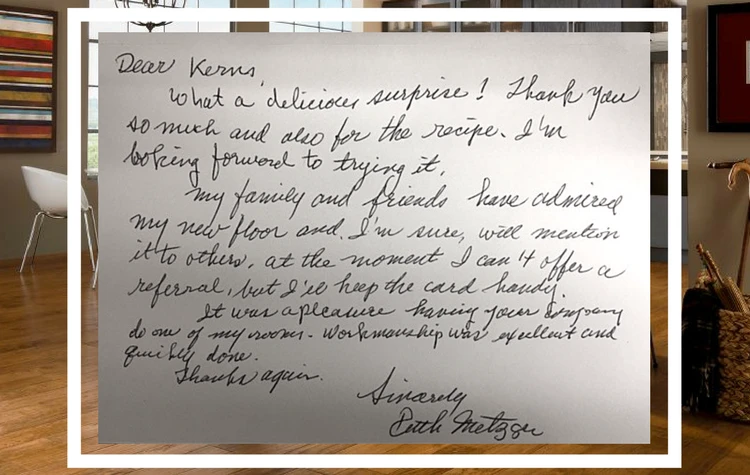 Dear Kerns,
What a delicious surprise! Thank you
so much and also for the recipe. I'm
looking forward to trying it.
My family and friends have admired
my new floor and, I'm sure, will mention
it to others. At the moment I can't offer a
referral, but I'll keep the card handy.
It was a pleasure having your company
do one of my rooms. Workmanship was excellent and
quickly done.
Thanks again.
Sincerely
Metzger